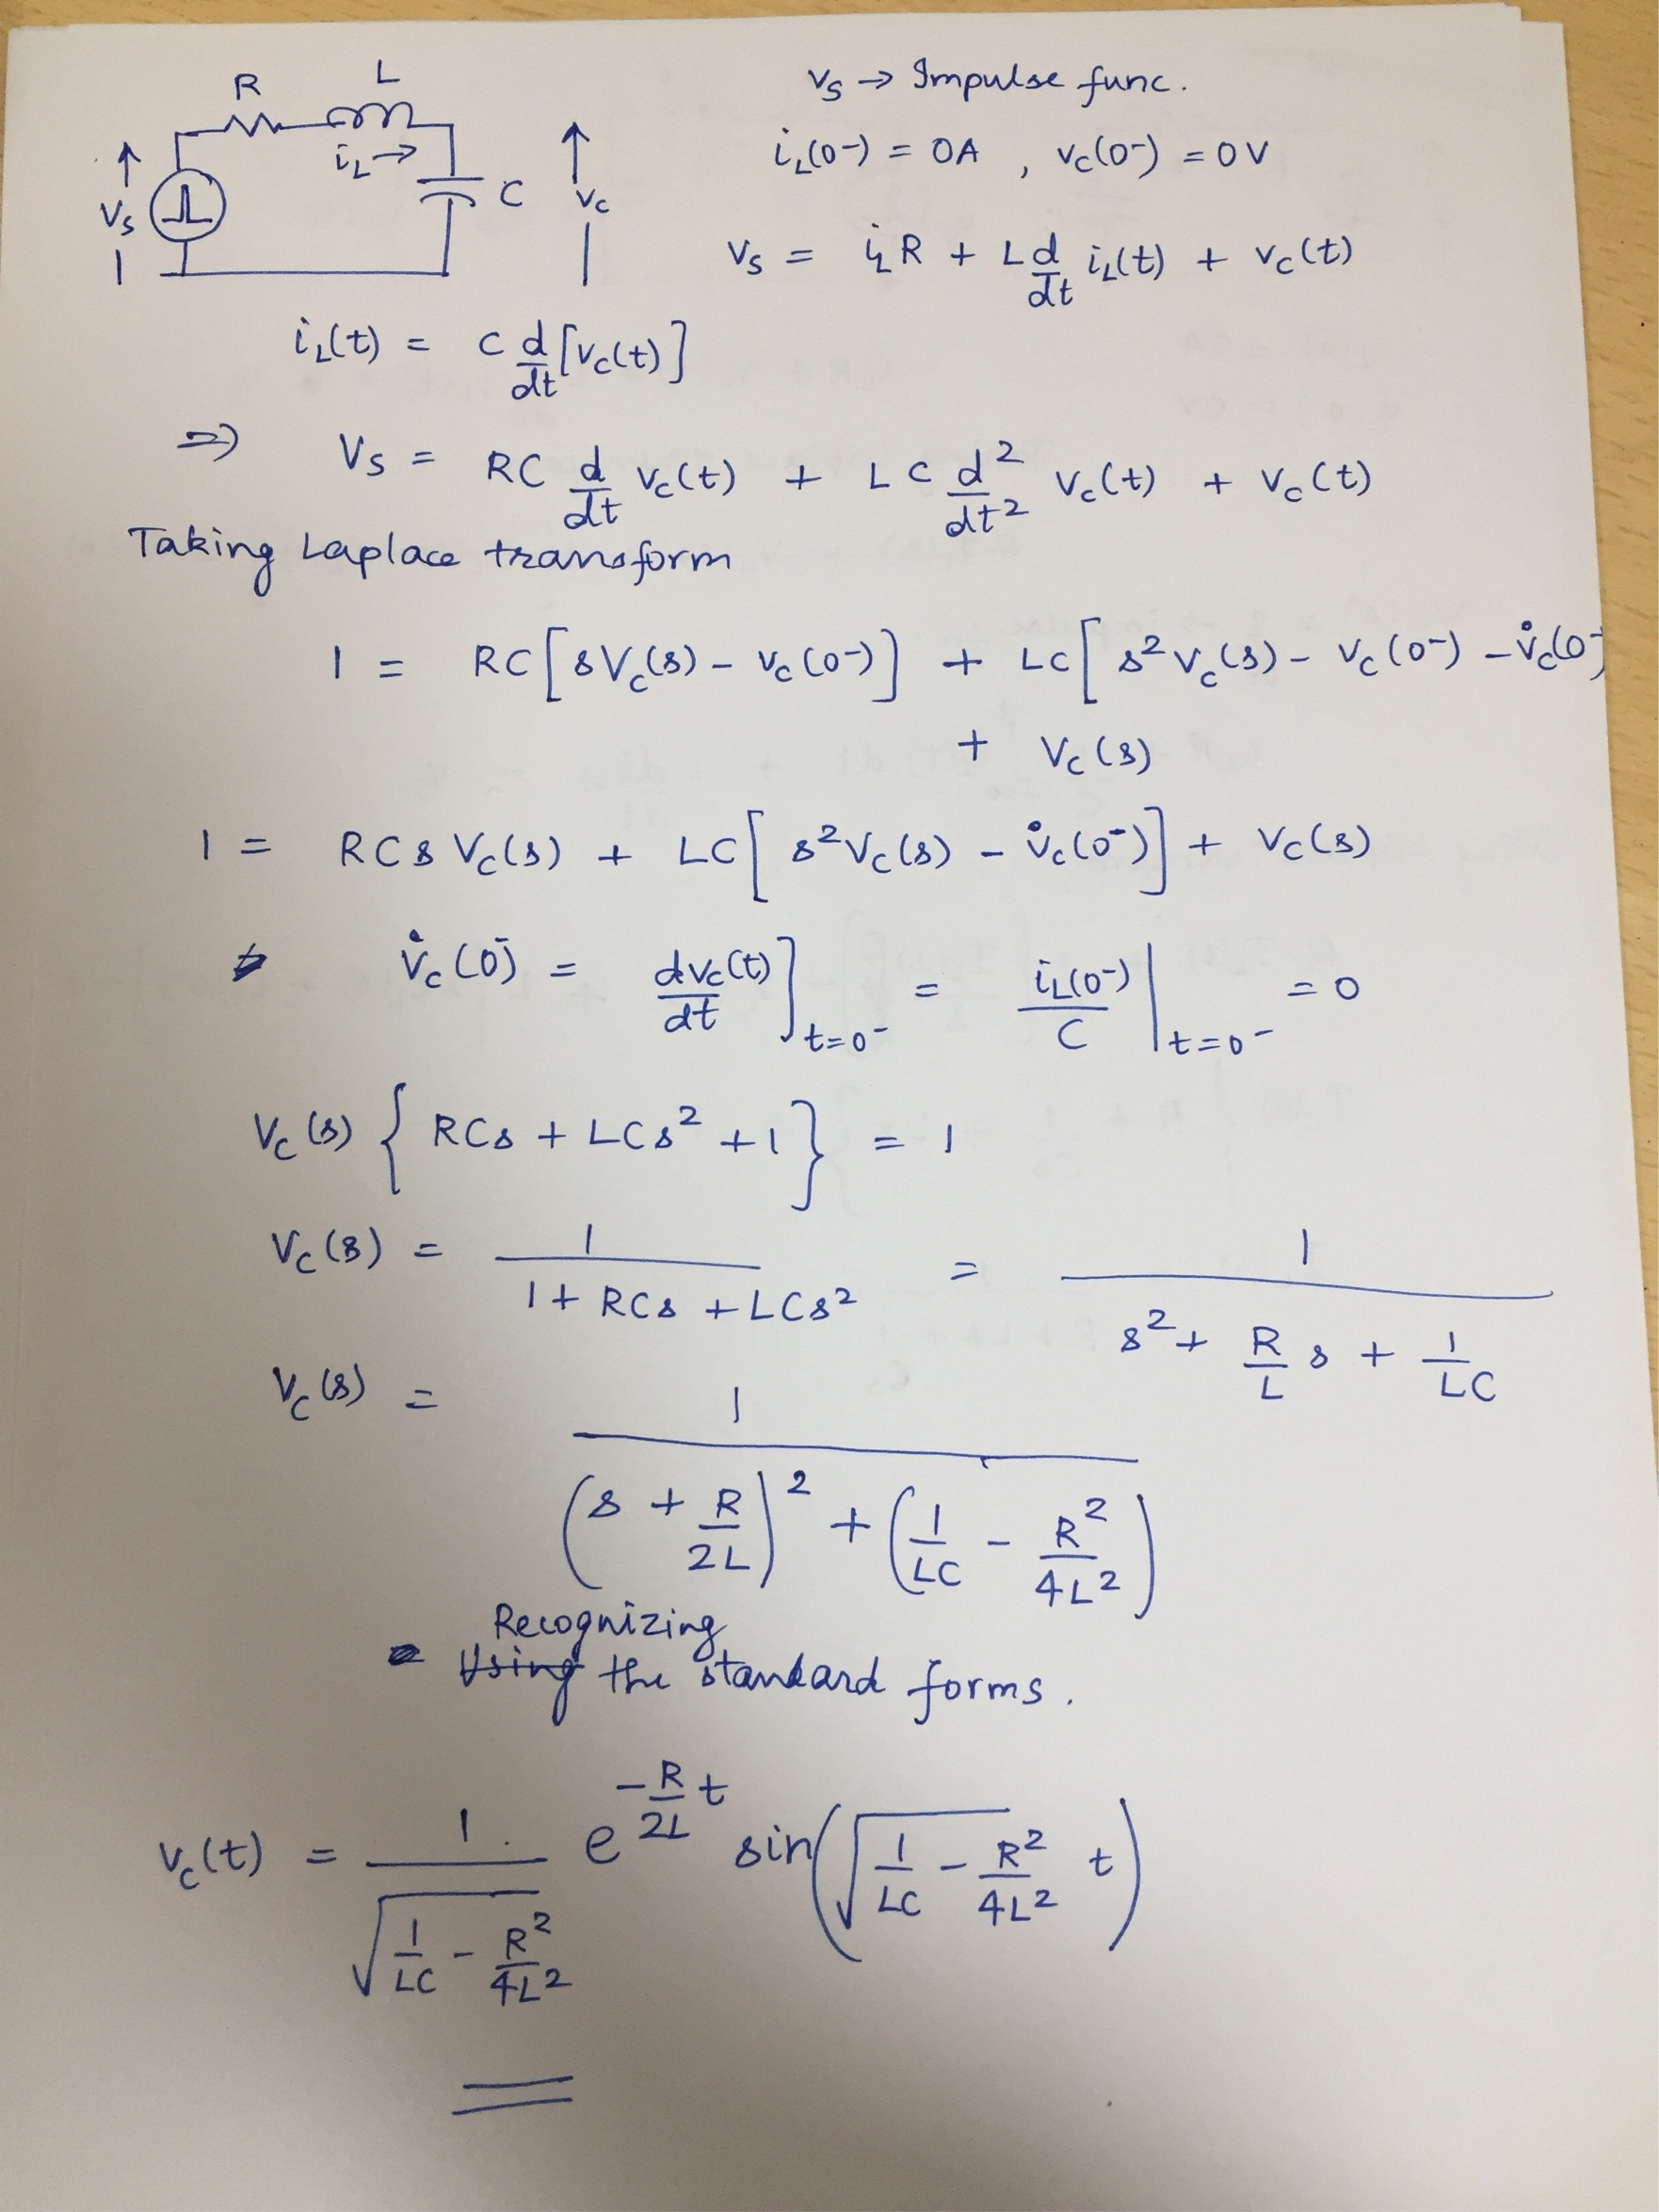 R L
i_L →
V_S C V_C
V_S → Impulse func.
i_L(0-) = 0A , V_C(0-) = 0V
V_S = i_L R + L d/dt i_L(t) + V_C(t)
i_L(t) = C d/dt [V_C(t)]
⇒ V_S = RC d/dt V_C(t) + LC d²/dt² V_C(t) + V_C(t)
Taking Laplace transform
1 = RC [s V_C(s) - V_C(0-)] + LC [s² V_C(s) - V_C(0-) - V̇_C(0-]
+ V_C(s)
1 = RCs V_C(s) + LC [s² V_C(s) - V̇_C(0-)] + V_C(s)
V̇_C(0-) = dV_C(t)/dt ]t=0- = i_L(0-)/C |t=0- = 0
V_C(s) {RCs + LCs² + 1} = 1
V_C(s) = 1/(1 + RCs + LCs²) = 1/(s² + R/L s + 1/LC)
V_C(s) = 1/((s + R/2L)² + (1/LC - R²/4L²))
Recognizing
Using the standard forms.
V_C(t) = 1/√(1/LC - R²/4L²) e^(-R/2L t) sin(√(1/LC - R²/4L²) t)